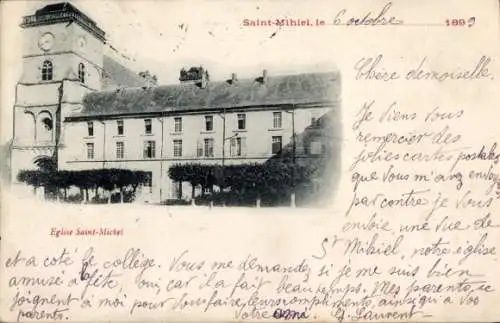 Saint-Mihiel, le 6 octobre 1899
Chère demoiselle,
Je viens vous
remercier des
jolies cartes postales
que vous m'avez envoy
par contre je vous
envoie, une vue de
St Mihiel, notre église
Eglise Saint-Michel
et a coté le collège. Vous me demandez, si je me suis bien
amusé à la fête, oui, car il a fait beau temps. Mes parents, se
joignent à moi pour vous faire, leurs compliments, ainsi qu'a vos
parents. Votre amie. G. Laurent